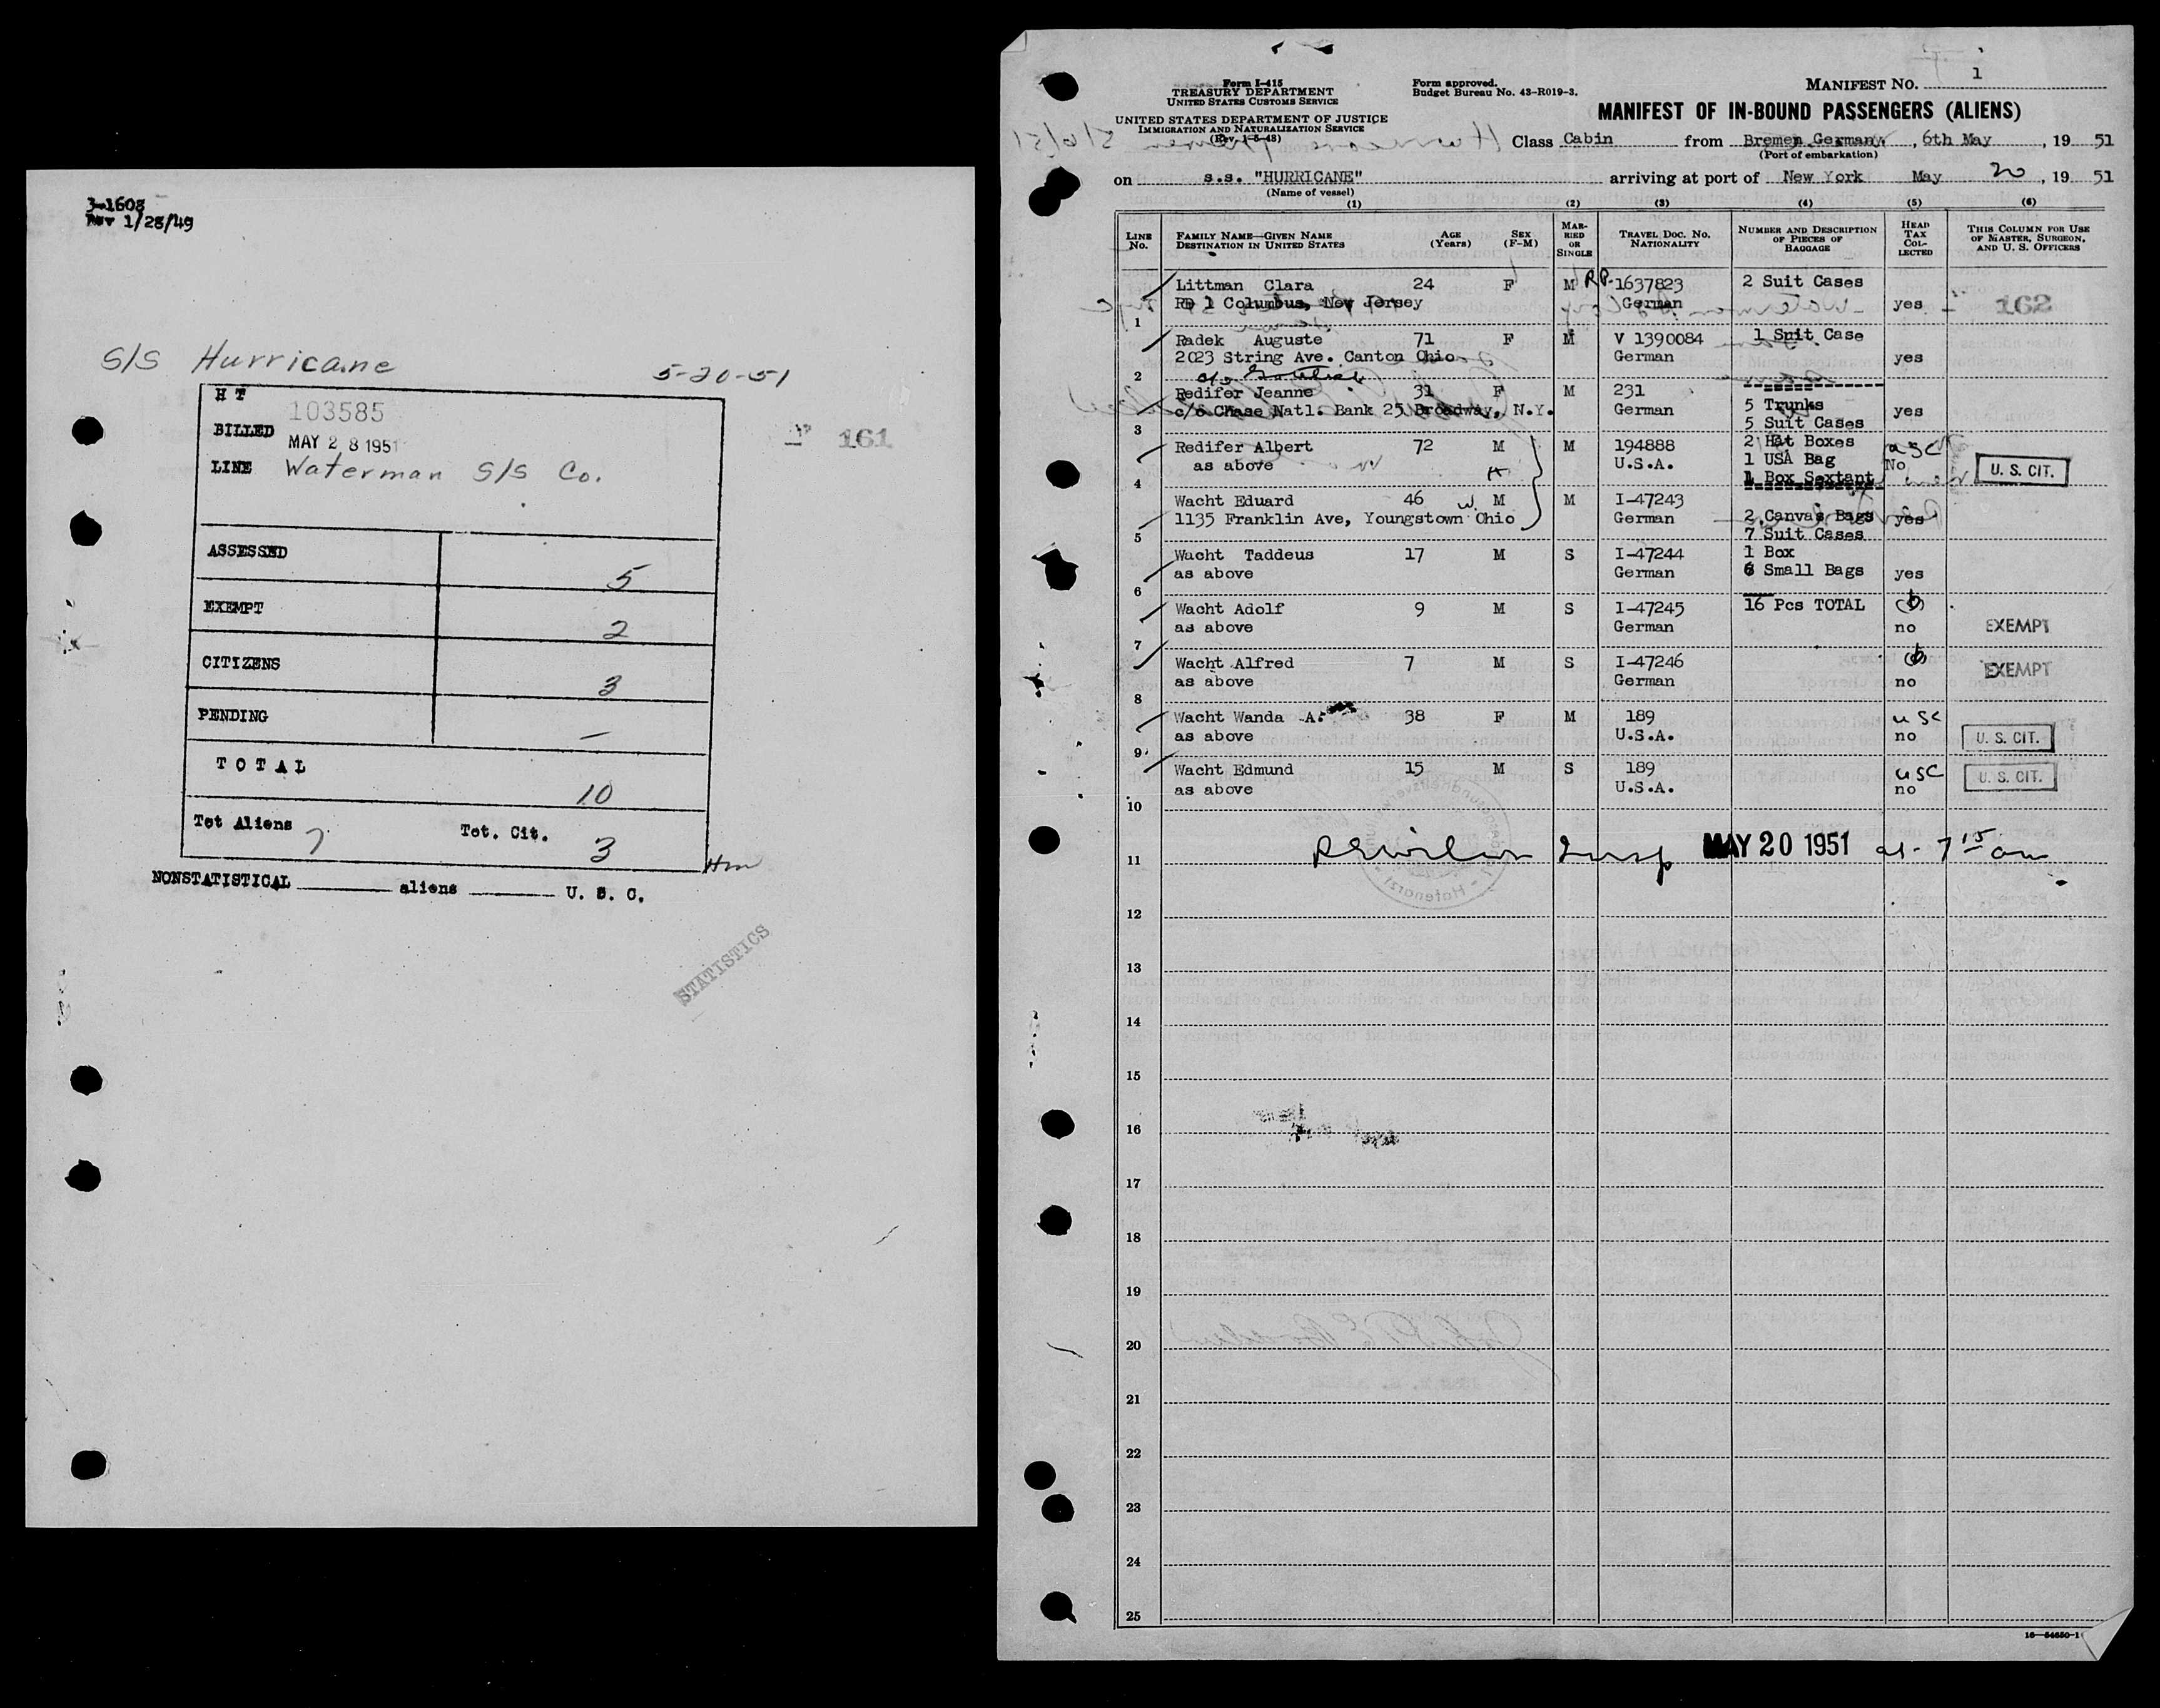 3-1608
Rev 1/28/49
S/S Hurricane
5-20-51
H T
103585
161
BILLED
MAY 28 1951
LINE Waterman S/S Co.
ASSESSED 5
EXEMPT 2
CITIZENS 3
PENDING —
TOTAL 10
Tot Aliens 7 Tot. Cit. 3
NONSTATISTICAL aliens U. S. C.
STATISTICS
Form I-415
TREASURY DEPARTMENT
UNITED STATES CUSTOMS SERVICE
UNITED STATES DEPARTMENT OF JUSTICE
IMMIGRATION AND NATURALIZATION SERVICE
(Rev. 1-5-48)
Form approved.
Budget Bureau No. 43-R019-3.
MANIFEST NO. 1
MANIFEST OF IN-BOUND PASSENGERS (ALIENS)
Class Cabin from Bremen Germany, 6th May, 19 51
(Port of embarkation)
on s.s. "HURRICANE" arriving at port of New York May 20, 19 51
(Name of vessel)
(1) (2) (3) (4) (5) (6)
LINE No.
FAMILY NAME—GIVEN NAME
DESTINATION IN UNITED STATES
AGE (Years)
SEX (F-M)
MARRIED OR SINGLE
TRAVEL DOC. NO. NATIONALITY
NUMBER AND DESCRIPTION OF PIECES OF BAGGAGE
HEAD TAX COLLECTED
THIS COLUMN FOR USE OF MASTER, SURGEON, AND U. S. OFFICERS
Littman Clara 24 F M RP 1637823 2 Suit Cases
RD 1 Columbus, New Jersey German yes 162
1
Radek Auguste 71 F M V 1390084 1 Suit Case
2023 String Ave. Canton Ohio German yes
2
Redifer Jeanne 31 F M 231
5 Trunks
c/o Chase Natl. Bank 25 Broadway, N.Y. German yes
5 Suit Cases
3
Redifer Albert 72 M M 194888 2 Hat Boxes
as above U.S.A. 1 USA Bag No U. S. CIT.
1 Box Sextant
4
Wacht Eduard 46 M M I-47243
1135 Franklin Ave, Youngstown Ohio German 2 Canvas Bags yes
7 Suit Cases
5
Wacht Taddeus 17 M S I-47244 1 Box
as above German 6 Small Bags yes
6
Wacht Adolf 9 M S I-47245 16 Pcs TOTAL
as above German no EXEMPT
7
Wacht Alfred 7 M S I-47246
as above German no EXEMPT
8
Wacht Wanda A. 38 F M 189 usc
as above U.S.A. no U. S. CIT.
9
Wacht Edmund 15 M S 189 usc
as above U.S.A. no U. S. CIT.
10
MAY 20 1951 at 7 15 am
11
12
13
14
15
16
17
18
19
20
21
22
23
24
25